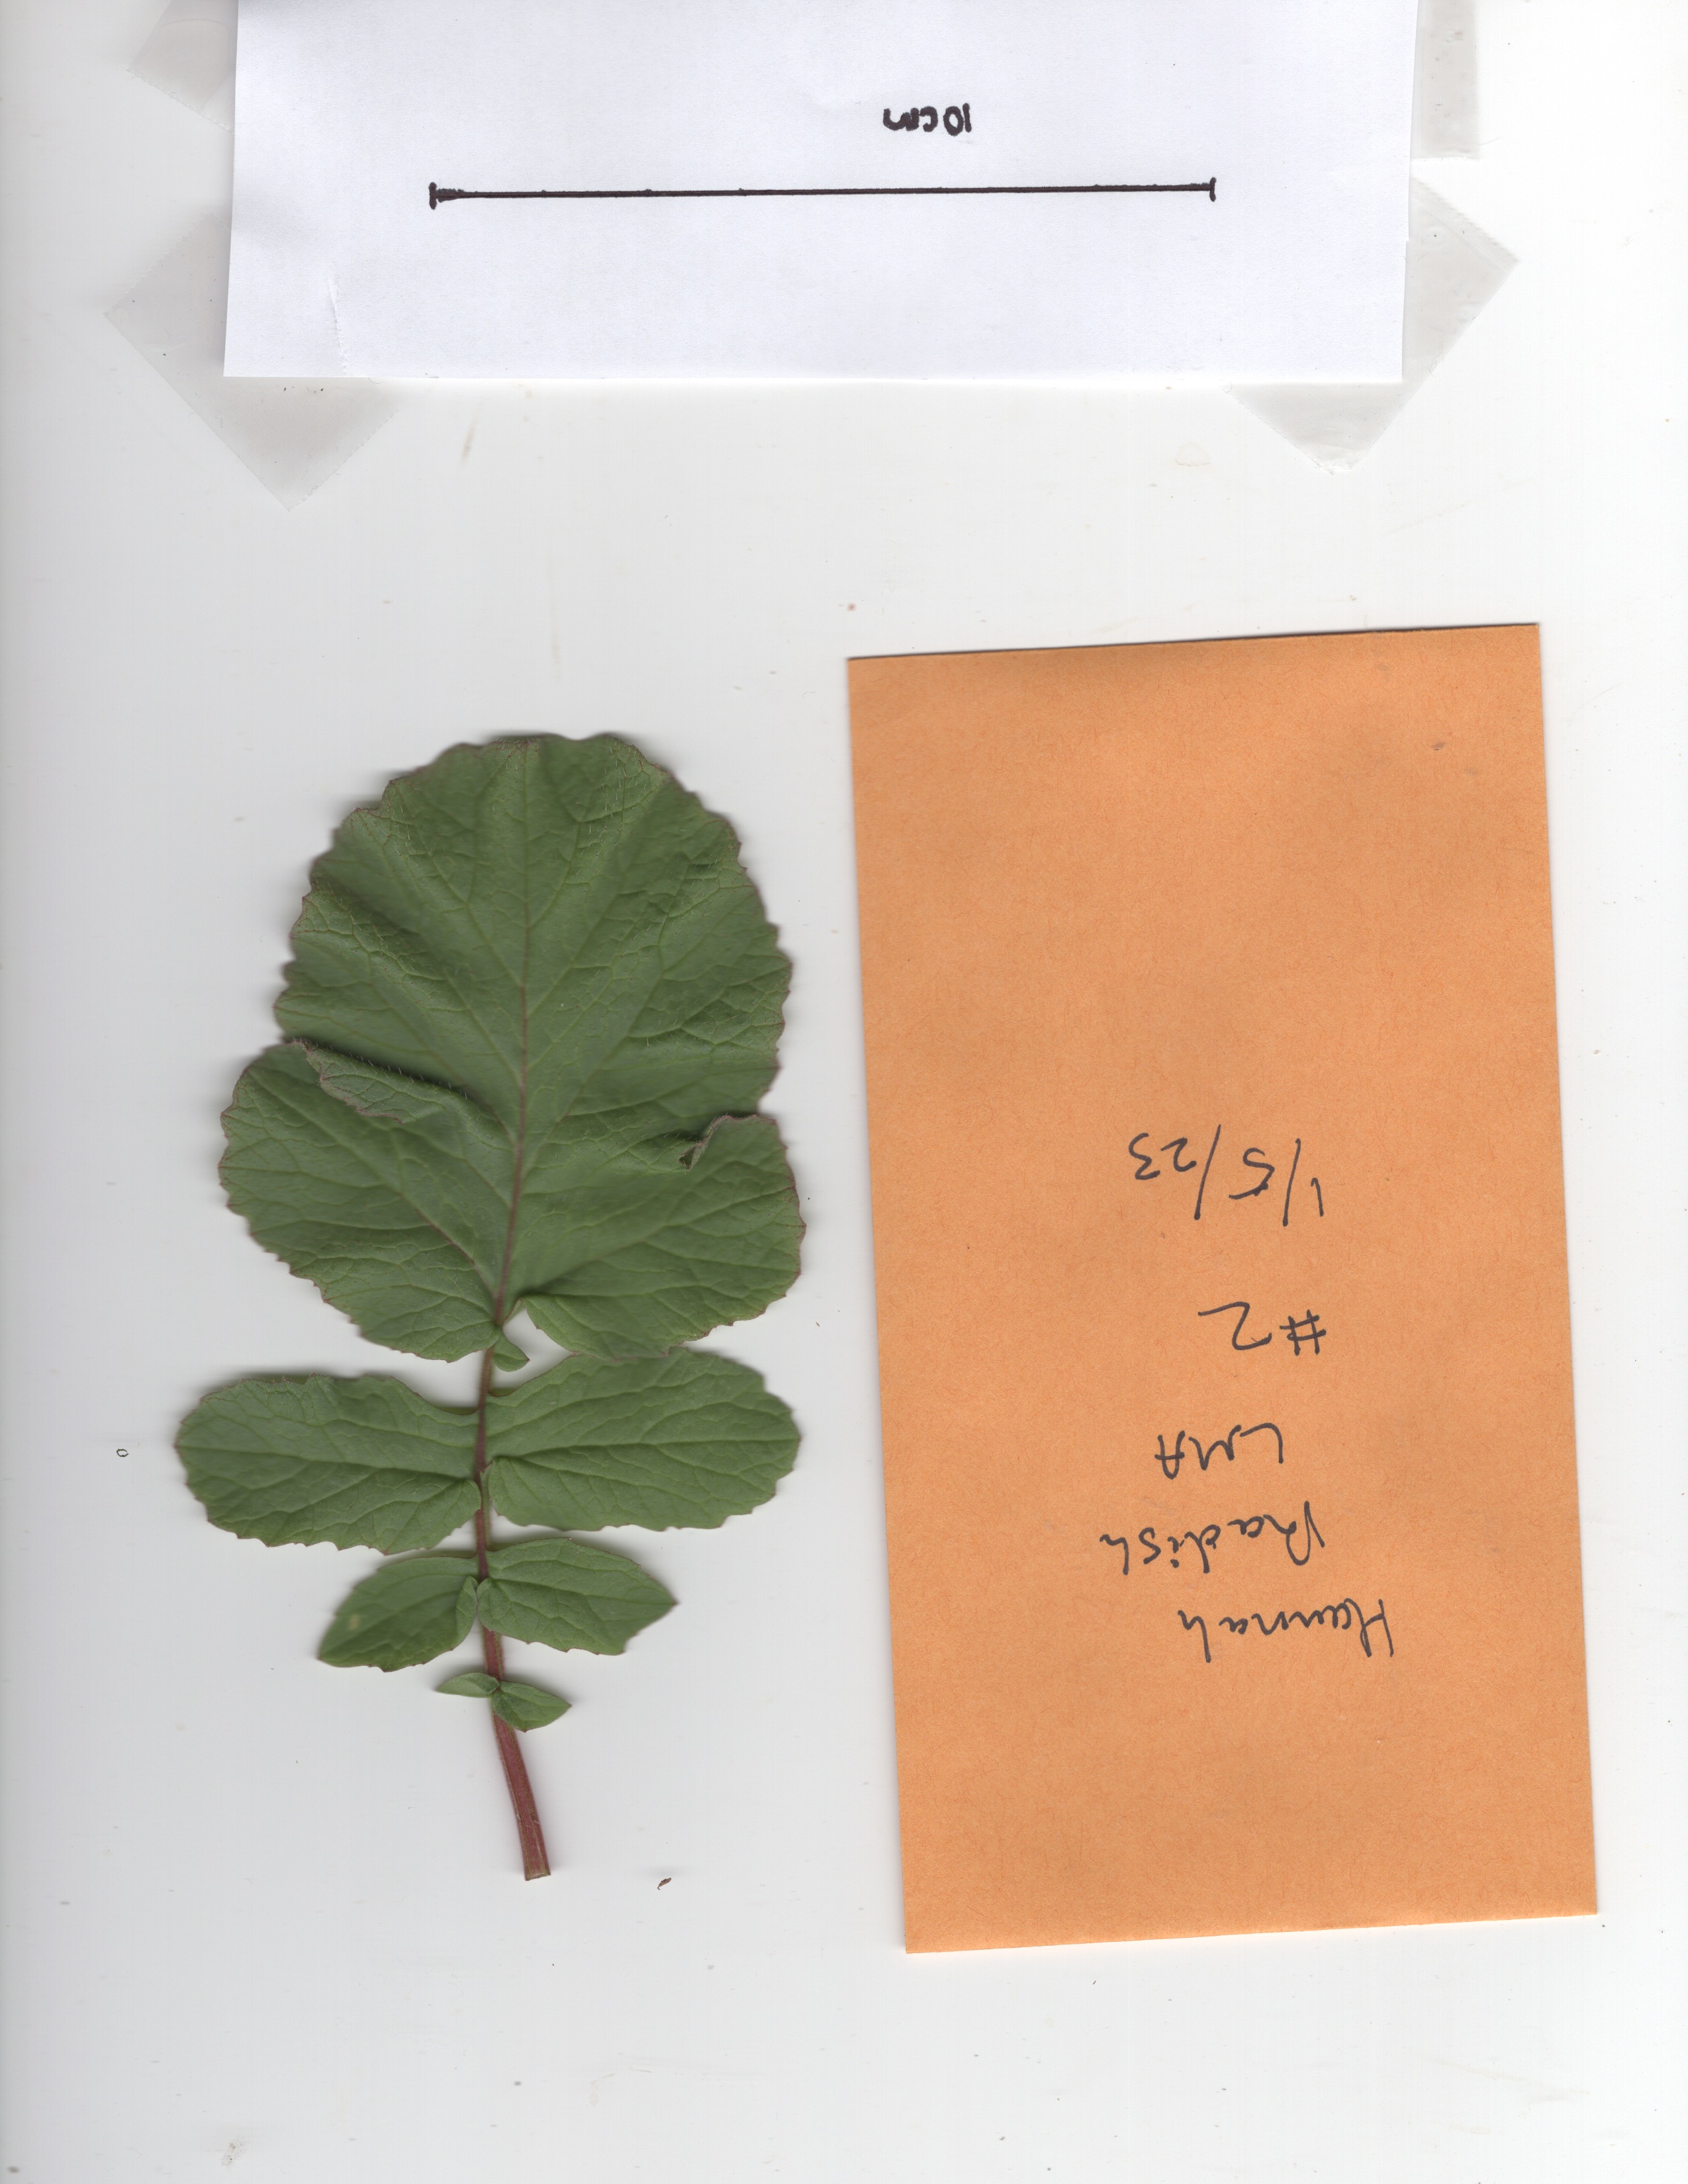 10cm
Hannah
Radish
LMA
#2
1/5/23